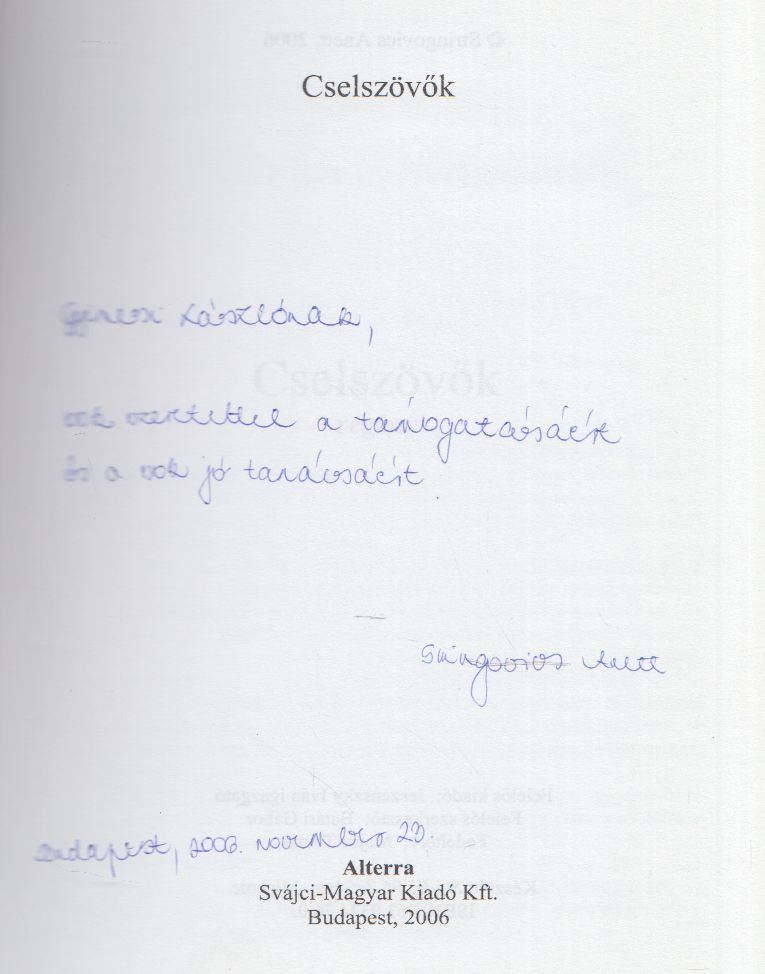 Cselszövők
Lászlónak,
sok szeretettel a támogatásáért
és a sok jó tanácsáért
Stringovics Anett
Budapest, 2006. november 20.
Alterra
Svájci-Magyar Kiadó Kft.
Budapest, 2006